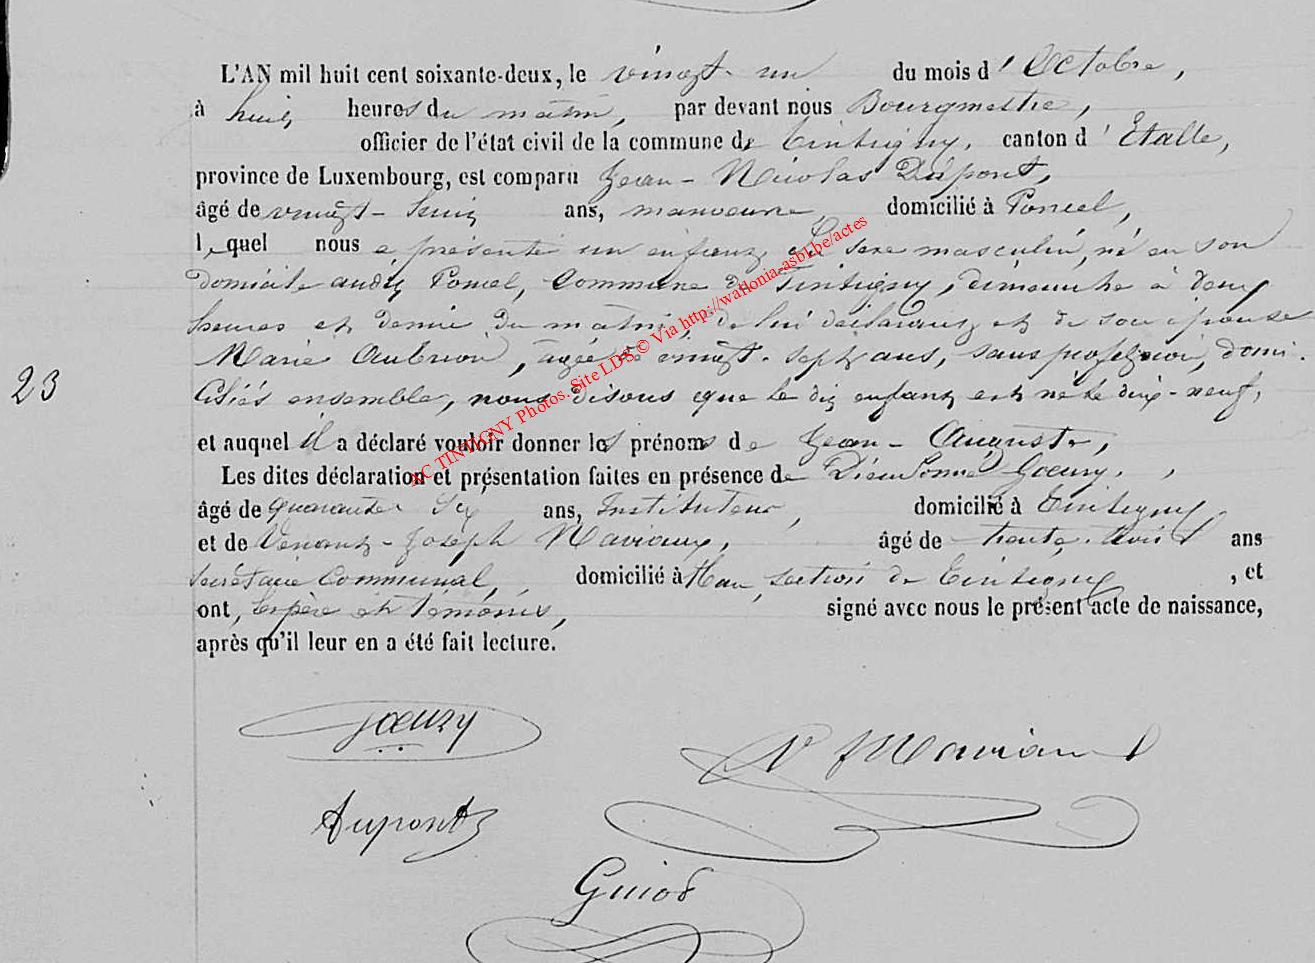 L'AN mil huit cent soixante-deux, le vingt un du mois d'Octobre,
à huit heures du matin, par devant nous Bourgmestre,
officier de l'état civil de la commune de Tintigny, canton d'Etalle,
province de Luxembourg, est comparu Jean-Nicolas Dupont,
âgé de vingt-huit ans, manoeuvre, domicilié à Poncel,
lequel nous a présenté un enfant du sexe masculin, né en son
domicile audit Poncel, commune de Tintigny, dimanche à deux
heures et demie du matin, de lui déclarant et de son épouse
Marie Aubrion, âgée de vingt-sept ans, sans profession, domi-
23
ciliés ensemble, nous disons que le dit enfant est né le dix-neuf,
et auquel il a déclaré vouloir donner les prénoms de Jean-Auguste,
Les dites déclaration et présentation faites en présence de Dieudonné Goeury,
âgé de quarante six ans, Instituteur, domicilié à Tintigny
et de Venant-Joseph Maviaux, âgé de trente-trois ans
Secrétaire Communal, domicilié à Han, section de Tintigny, et
ont, le père et témoins, signé avec nous le présent acte de naissance,
après qu'il leur en a été fait lecture.
Goeury
V J Maviaux
Dupont
Guiot
AC TINTIGNY Photos. Site LDG © Via http://wallonia-asbl.be/actes